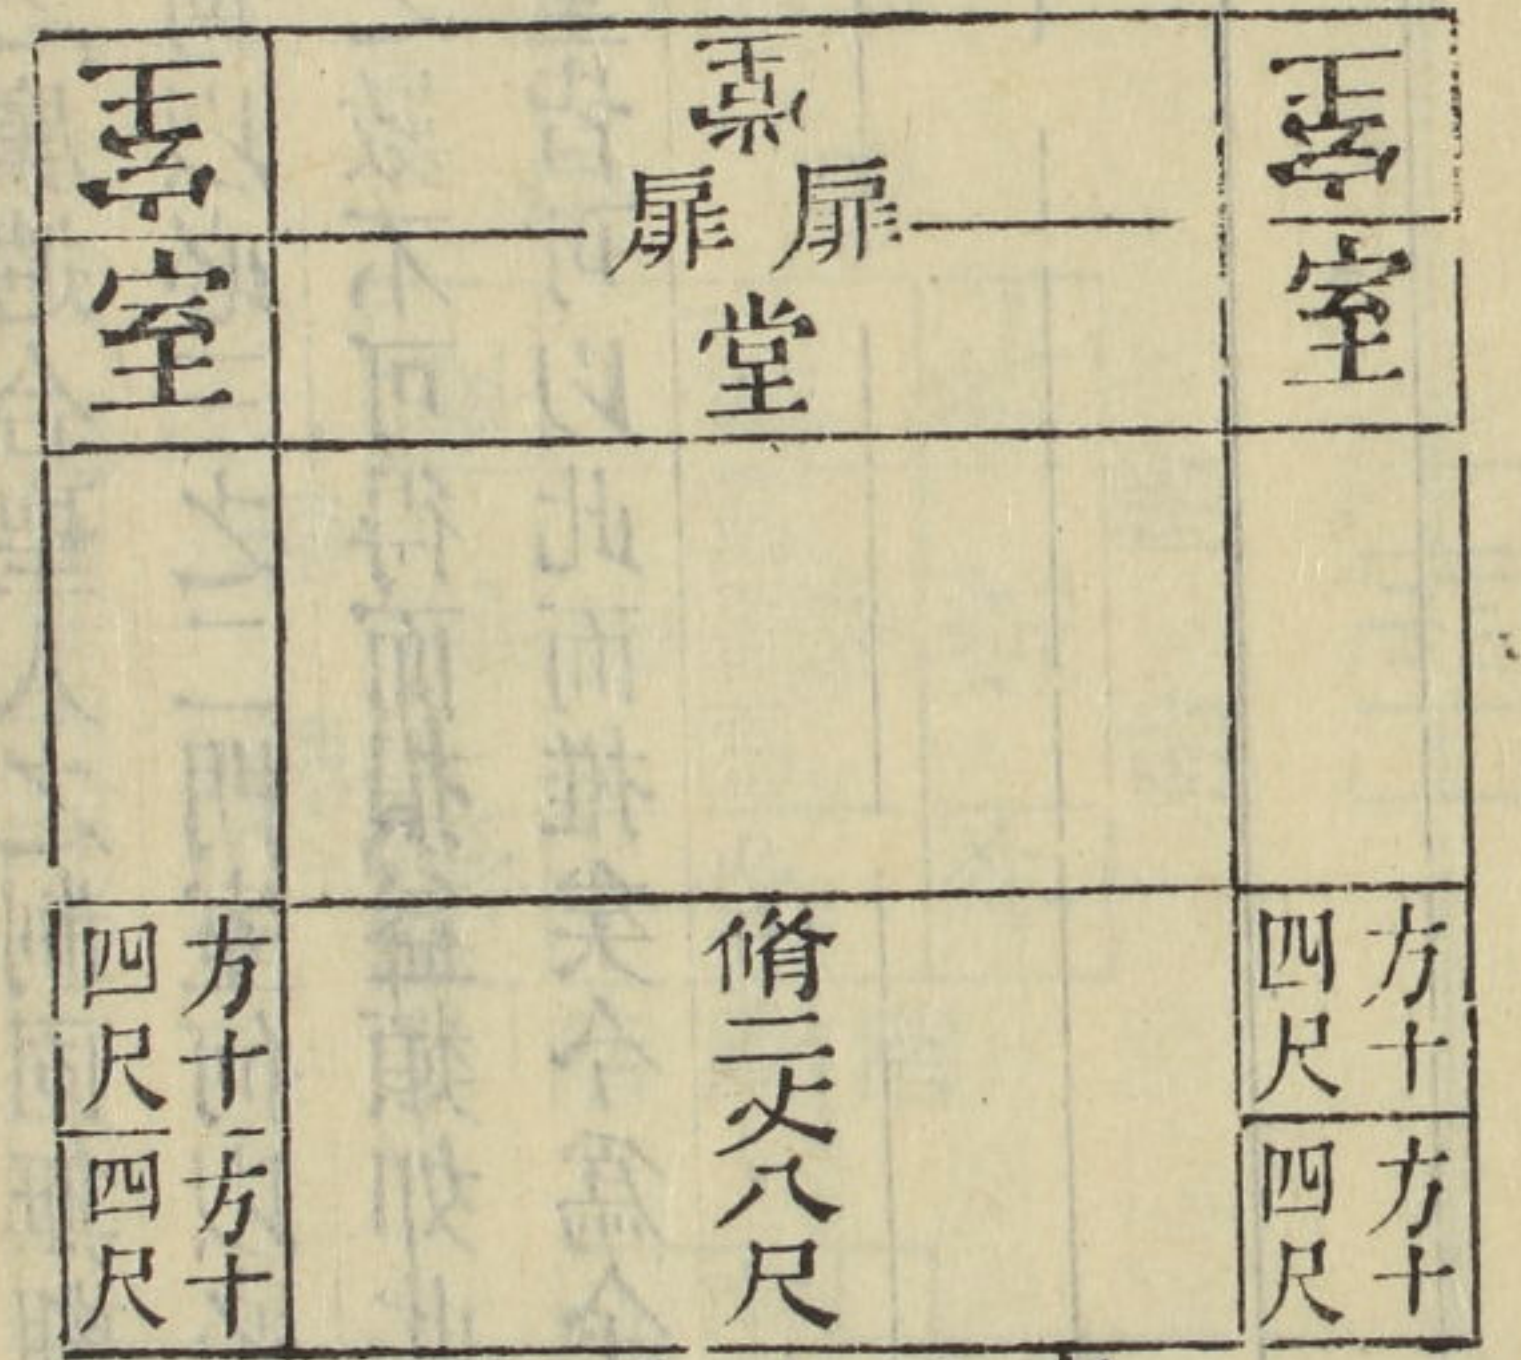 室
室
方十
四尺
方十
四尺
堂
扉
扉
堂
脩二丈八尺
室
室
方十
四尺
方十
四尺